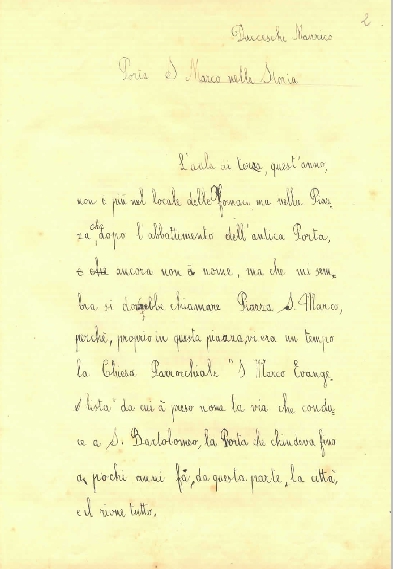 2
Ducceschi Manrico
Porta S Marco nella Storia
L'aula di terza, quest'anno,
non è più nel locale delle Fornaci ma nella Piaz-
za, che dopo l'abbattimento dell'antica Porta,
è che ancora non à nome, ma che mi sem-
bra si dovrebbe chiamare Piazza S. Marco,
perchè, proprio in questa piazza, vi era un tempo
la Chiesa Parrocchiale "S Marco Evange-
lista" da cui à preso nome la via che condu-
ce a S. Bartolomeo, la Porta che chiudeva fino
a pochi anni fà, da questa parte, la città,
e il rione tutto.